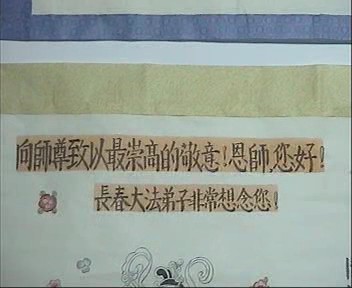 向師尊致以最崇高的敬意！恩師,您好！
長春大法弟子非常想念您！